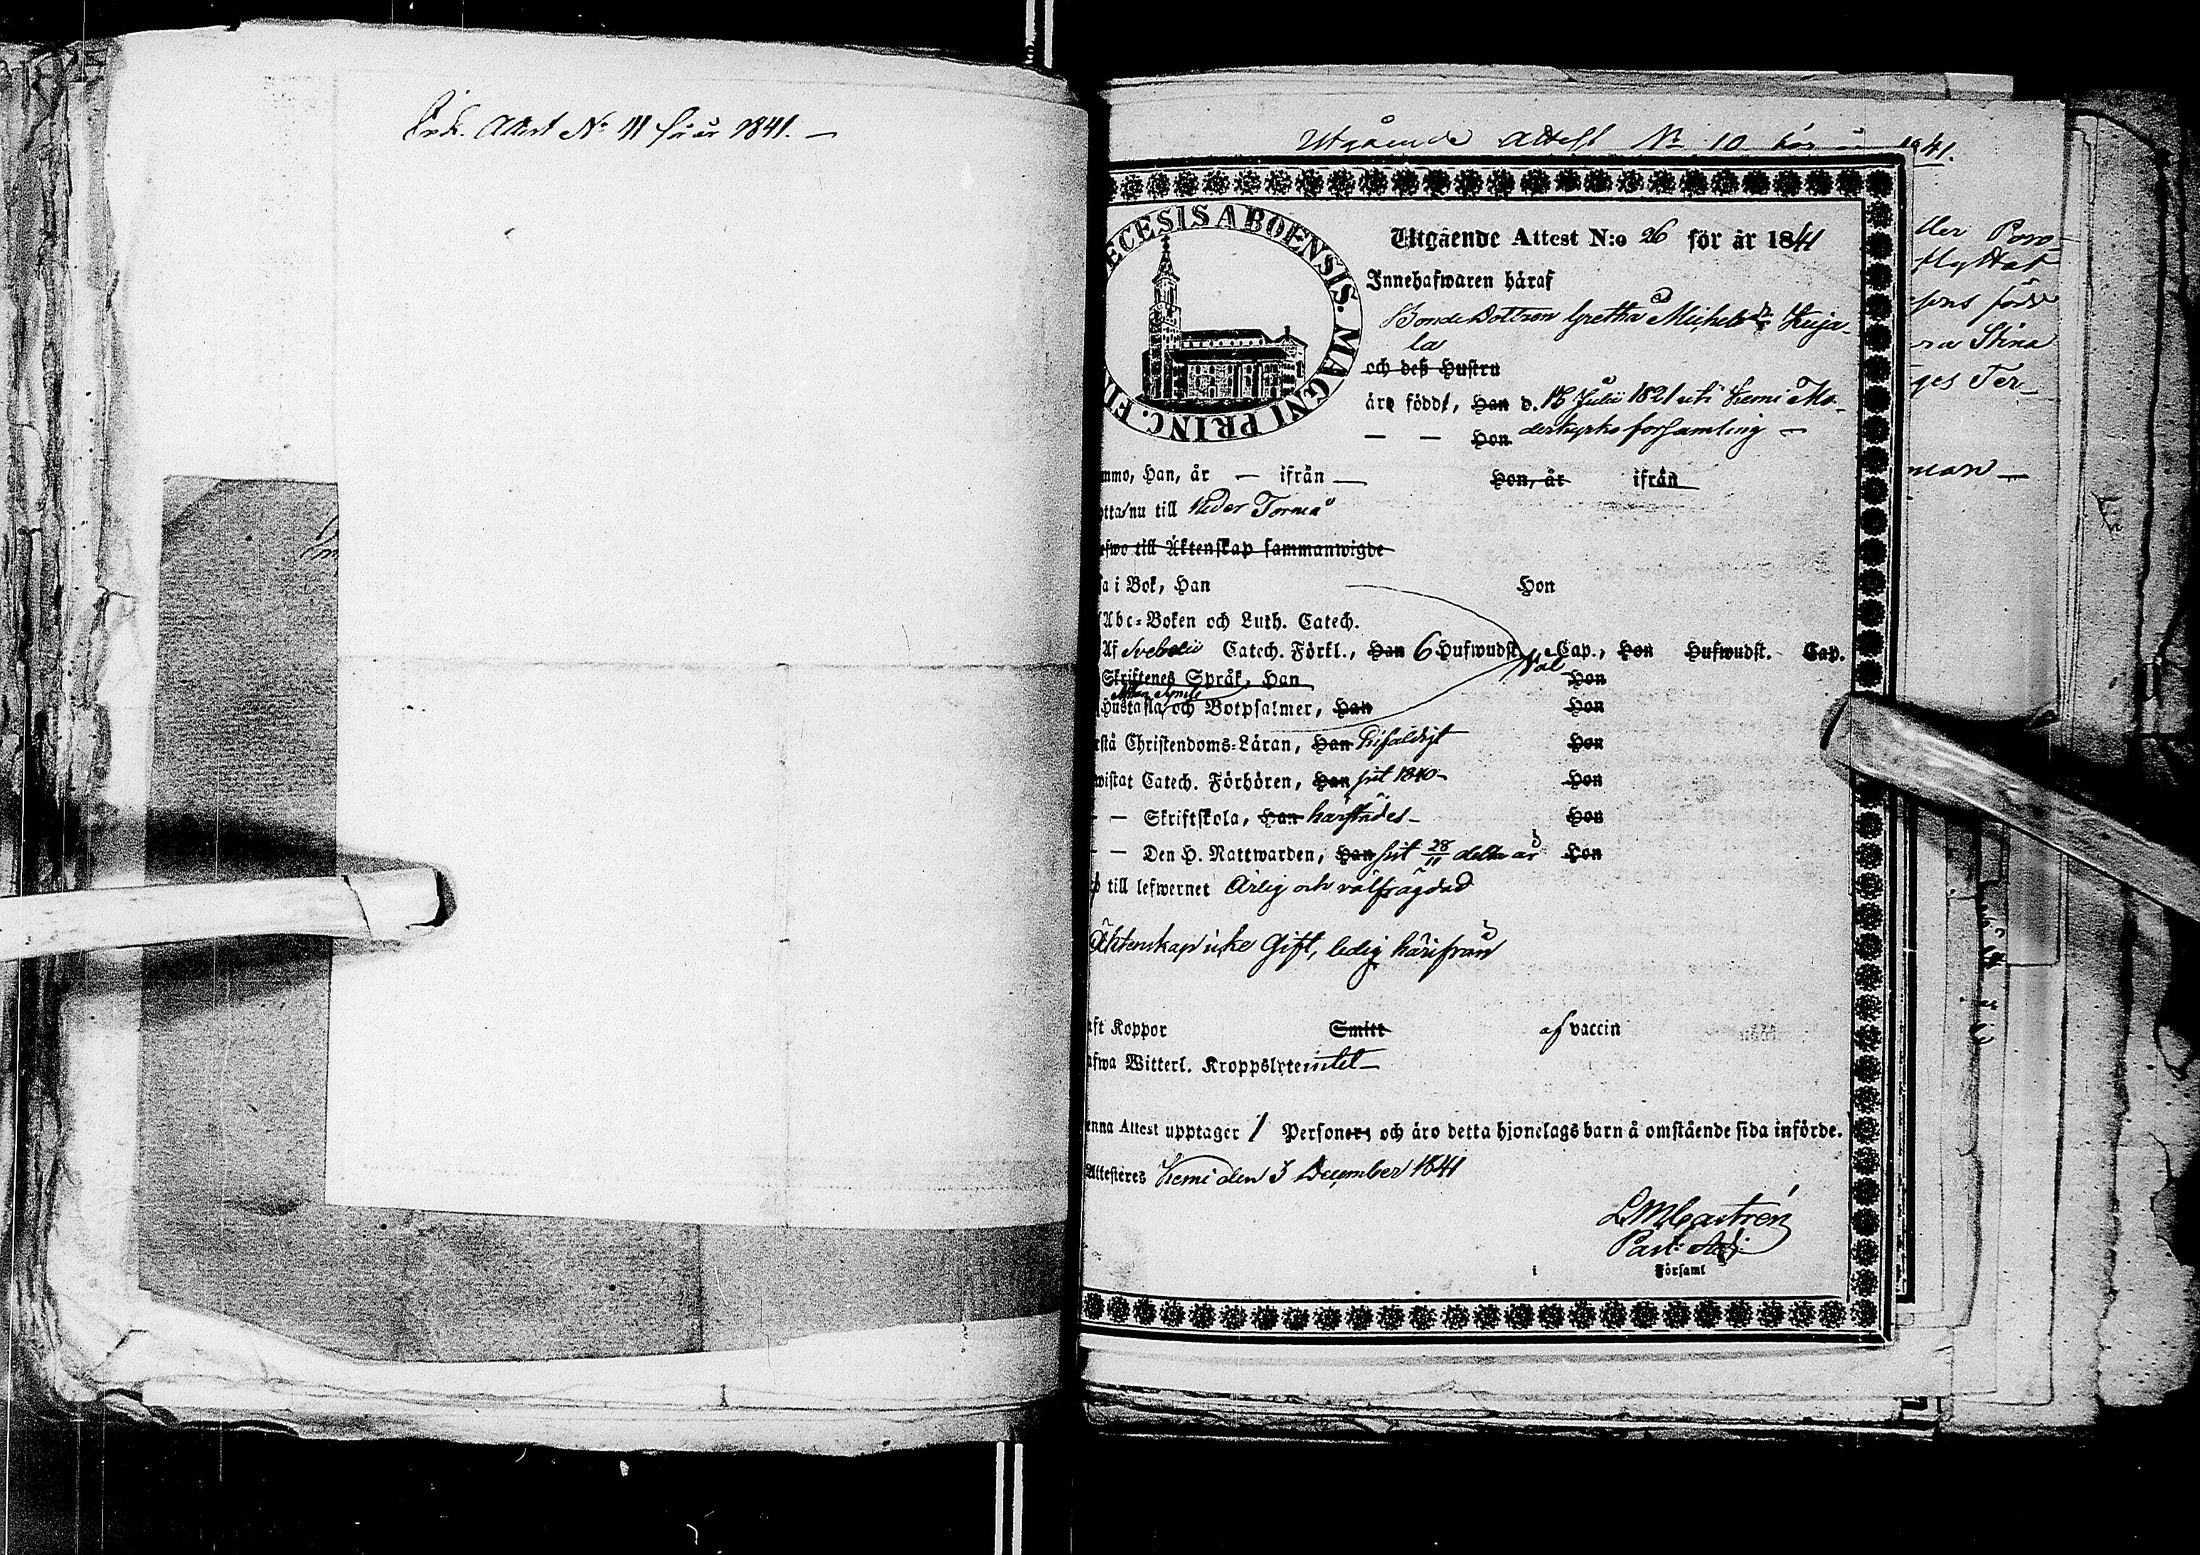 Ink. Attest No 11 för år 1841. —
Utgående Attest No 10 för å 1841.
ECESIS ABOENSIS. MAGNI PRINC. FI
Utgående Attest N:o 26 för år 1841
Innehafwaren häraf
Bonde Dottren Gretha Michelsdr Kuja-
la
och deß Hustru
äro född, Han d. 13 Julii 1821 uti Kemi Mo-
— — Hon derkyrko församling —
mmo, Han, år — ifrån — Hon, år ifrån
otta nu till Neder Torneå
efwo till Äktenskap sammanwigde
sa i Bok, Han Hon
Abc-Boken och Luth. Catech.
Af Svebelii Catech. Förkl., Han 6 Hufwudst. Cap., Hon Hufwudst. Cap.
Väl
Skriftenes Språk, Han Hon
Hustafla, och Botpsalmer, Han Hon
rstå Christendoms-Läran, Han Enfaldigt Hon
wistat Catech. Förhören, Han sist 1840 — Hon
— — Skriftskola, Han härstädes — Hon
— — Den H. Nattwarden, Han sist 28/11 detta år Hon
d till lefwernet Ärlig och välfrägdad
Äktenskap icke Gift, ledig härifrån
aft Koppor Smitt af vaccin
afwa Witterl. Kroppslyte intet —
enna Attest upptager 1 Personer, och äro detta hjonelags barn å omstående sida införde.
Attesteres Kemi den 3 December 1841
L M Castrén
Past. Adj.
i Församl
ller Poro-
flyttat
ra Stina
ges Ter-
man —